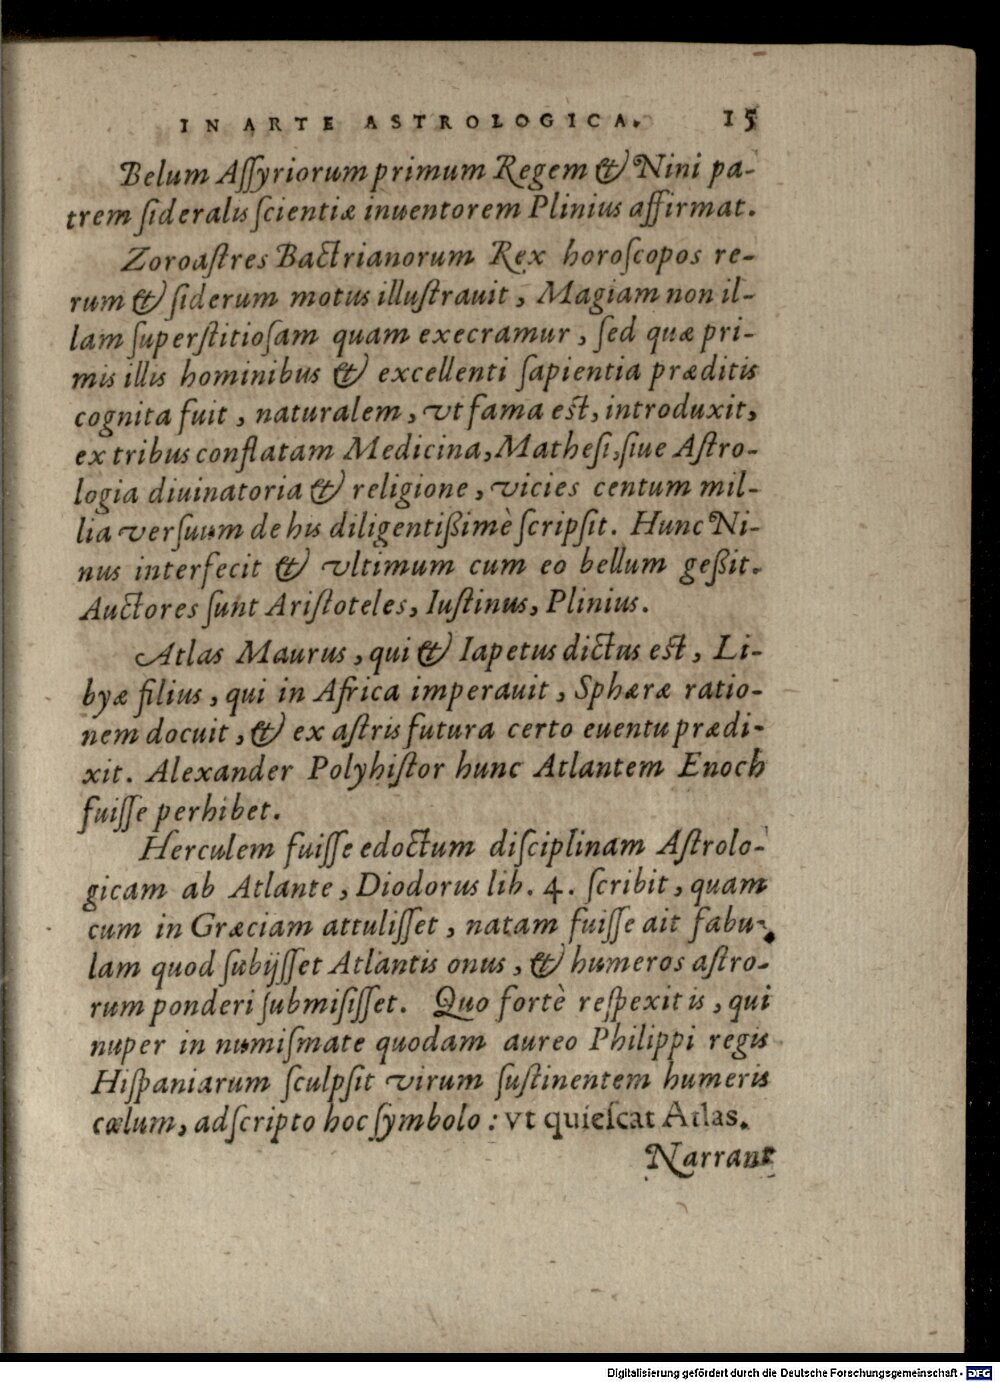 IN ARTE ASTROLOGICA. 15
Belum Aſſyriorum primum Regem & Nini pa-
trem ſideralis ſcientiæ inuentorem Plinius affirmat.
Zoroaſtres Bactrianorum Rex horoſcopos re-
rum & ſiderum motus illuſtrauit, Magiam non il-
lam ſuperſtitioſam quam execramur, ſed quæ pri-
mis illis hominibus & excellenti ſapientia præditis
cognita fuit, naturalem, vt fama eſt, introduxit,
ex tribus conflatam Medicina, Matheſi, ſiue Aſtro-
logia diuinatoria & religione, vicies centum mil-
lia verſuum de his diligentißimè ſcripſit. Hunc Ni-
nus interfecit & vltimum cum eo bellum geßit.
Auctores ſunt Ariſtoteles, Iuſtinus, Plinius.
Atlas Maurus, qui & Iapetus dictus eſt, Li-
byæ filius, qui in Africa imperauit, Sphæræ ratio-
nem docuit, & ex aſtris futura certo euentu prædi-
xit. Alexander Polyhiſtor hunc Atlantem Enoch
fuiſſe perhibet.
Herculem fuiſſe edoctum diſciplinam Aſtrolo-
gicam ab Atlante, Diodorus lib. 4. ſcribit, quam
cum in Græciam attuliſſet, natam fuiſſe ait fabu-
lam quod ſubijſſet Atlantis onus, & humeros aſtro-
rum ponderi ſubmiſiſſet. Quo fortè reſpexit is, qui
nuper in numiſmate quodam aureo Philippi regis
Hiſpaniarum ſculpſit virum ſuſtinentem humeris
cœlum, adſcripto hoc ſymbolo: vt quieſcat Atlas.
Narrant
Digitalisierung gefördert durch die Deutsche Forschungsgemeinschaft - DFG